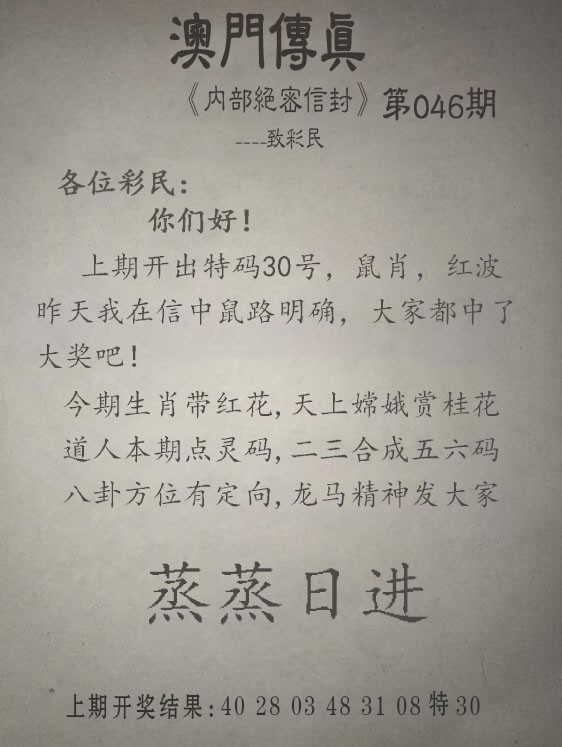 澳門傳真
《内部絕密信封》第046期
----致彩民
各位彩民:
你们好!
上期开出特码30号，鼠肖，红波
昨天我在信中鼠路明确，大家都中了
大奖吧!
今期生肖带红花,天上嫦娥赏桂花
道人本期点灵码,二三合成五六码
八卦方位有定向,龙马精神发大家
蒸蒸日进
上期开奖结果:40 28 03 48 31 08 特30